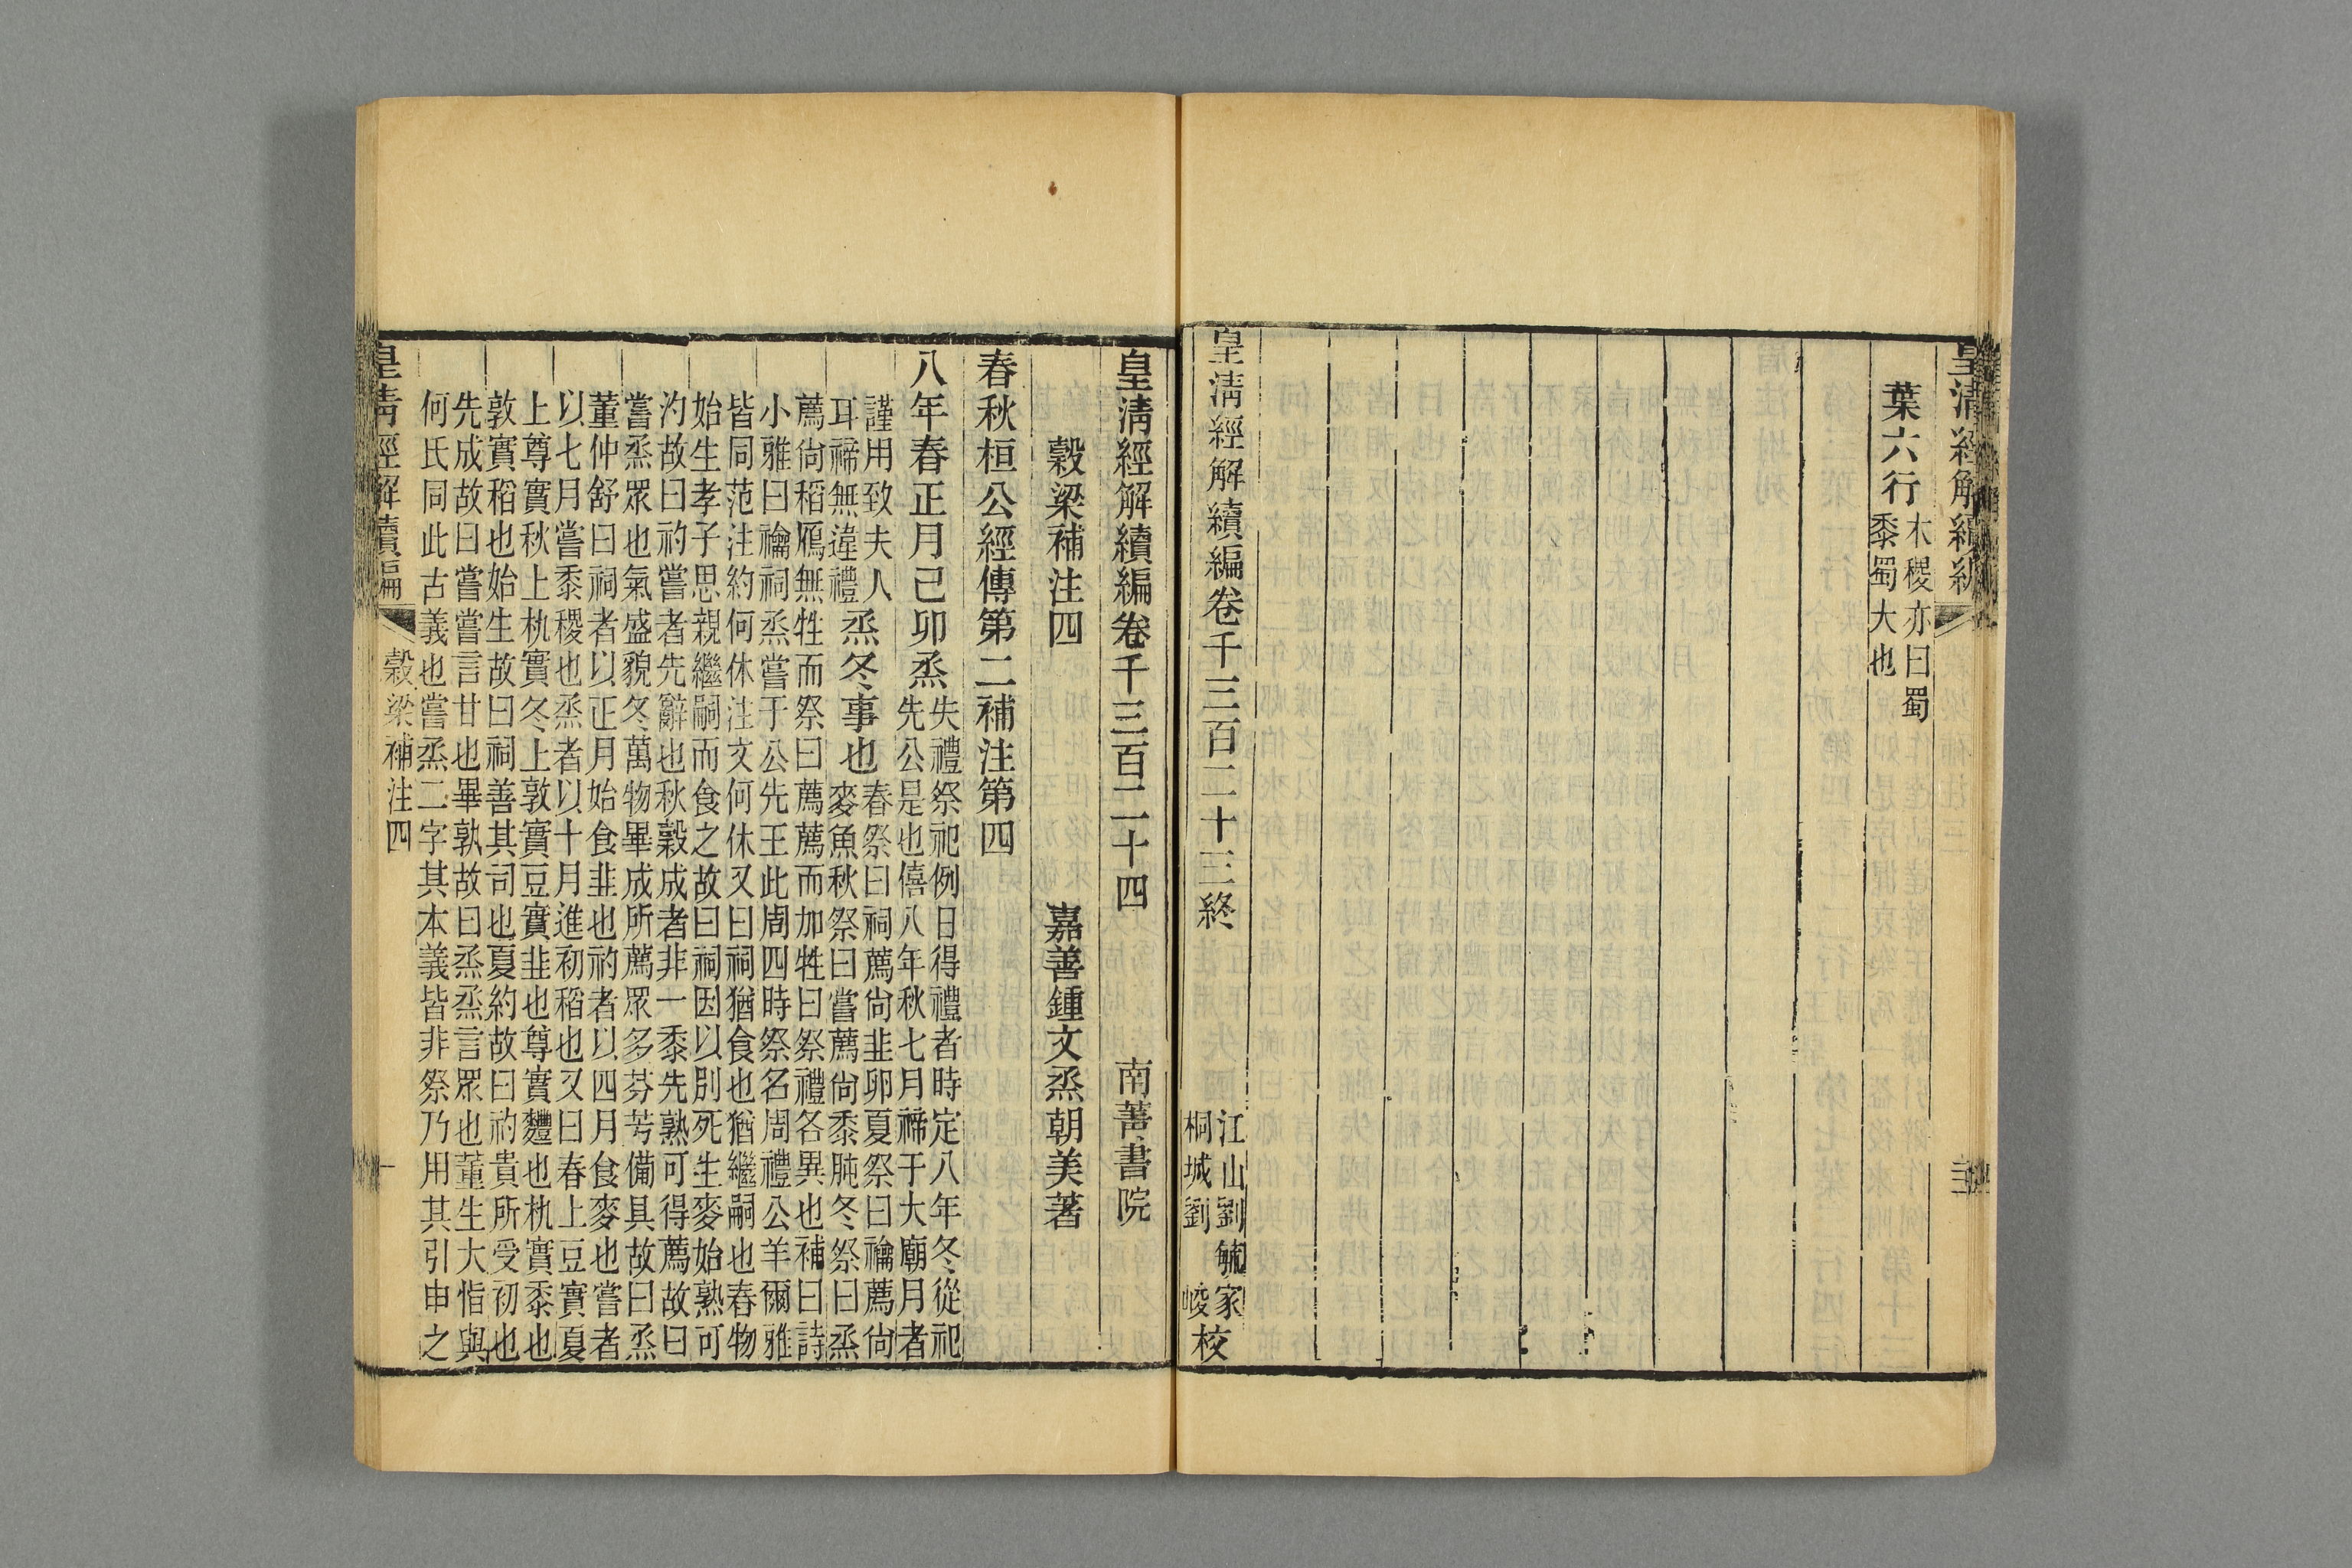 皇清經解續編
葉六行
木稷亦曰蜀
黍蜀大也
皇清經解續編卷千三百二十三終
江山劉毓家
桐城劉 崚
校
皇清經解續編卷千三百二十四
南菁書院
穀梁補注四
嘉善鍾文烝朝美著
春秋桓公經傳第二補注第四
八年春正月己卯烝
失禮祭祀例日得禮者時定八年冬從祀
先公是也僖八年秋七月禘于大廟月者
謹用致夫人
耳禘無違禮
烝冬事也
春祭曰祠薦尙韭卵夏祭曰禴薦尙
麥魚秋祭曰嘗薦尙黍肫冬祭曰烝
薦尙稻鴈無牲而祭曰薦薦而加牲曰祭禮各異也補曰詩
小雅曰禴祠烝嘗于公先王此周四時祭名周禮公羊爾雅
皆同范注約何休注文何休又曰祠猶食也猶繼嗣也春物
始生孝子思親繼嗣而食之故曰祠因以別死生麥始熟可
汋故曰礿嘗者先辭也秋穀成者非一黍先熟可得薦故曰
嘗烝眾也氣盛貌冬萬物畢成所薦眾多芬芳備具故曰烝
董仲舒曰祠者以正月始食韭也礿者以四月食麥也嘗者
以七月嘗黍稷也烝者以十月進初稻也又曰春上豆實夏
上尊實秋上朹實冬上敦實豆實韭也尊實麷也朹實黍也
敦實稻也始生故曰祠善其司也夏約故曰礿貴所受初也
先成故曰嘗嘗言甘也畢孰故曰烝烝言眾也董生大恉與
何氏同此古義也嘗烝二字其本義皆非祭乃用其引申之
皇清經解續編
穀梁補注四
一